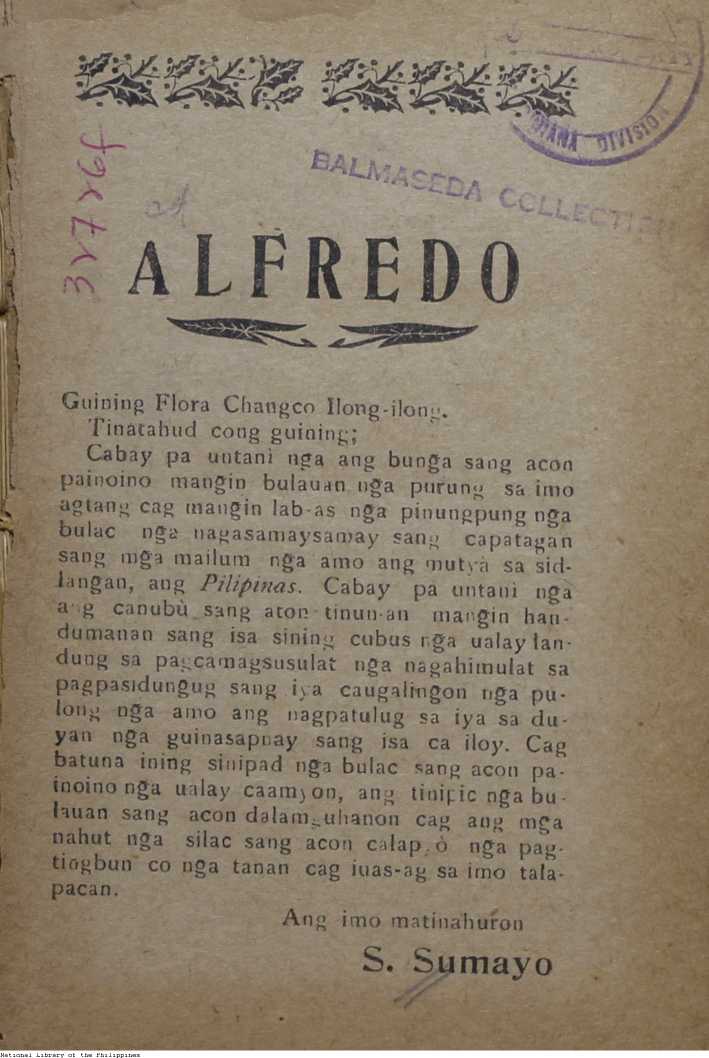 BALMASEDA COLLECTION
DIVISION
327 x6f
ALFREDO
Guining Flora Changco Ilong-ilong.
Tinatahud cong guining;
Cabay pa untani nga ang bunga sang acon
painoino mangin bulauan nga purung sa imo
agtang cag mangin lab-as nga pinungpung nga
bulac nga nagasamaysamay sang capatagan
sang mga mailum nga amo ang mutyà sa sid-
langan, ang Pilipinas. Cabay pa untani nga
ang canubù sang aton tinun-an mangin han-
dumanan sang isa sining cubus nga ualay lan-
dung sa pagcamagsusulat nga nagahimulat sa
pagpasidungug sang iya caugalingon nga pu-
long nga amo ang nagpatulug sa iya sa du-
yan nga guinasapnay sang isa ca iloy. Cag
batuna ining sinipad nga bulac sang acon pa-
inoino nga ualay caamyon, ang tinipic nga bu-
lauan sang acon dalamguhanon cag ang mga
nahut nga silac sang acon nga pag-
tingbun co nga tanan cag iuas-ag sa imo tala-
pacan.
Ang imo matinahuron
S. Sumayo
National Library of the Philippines